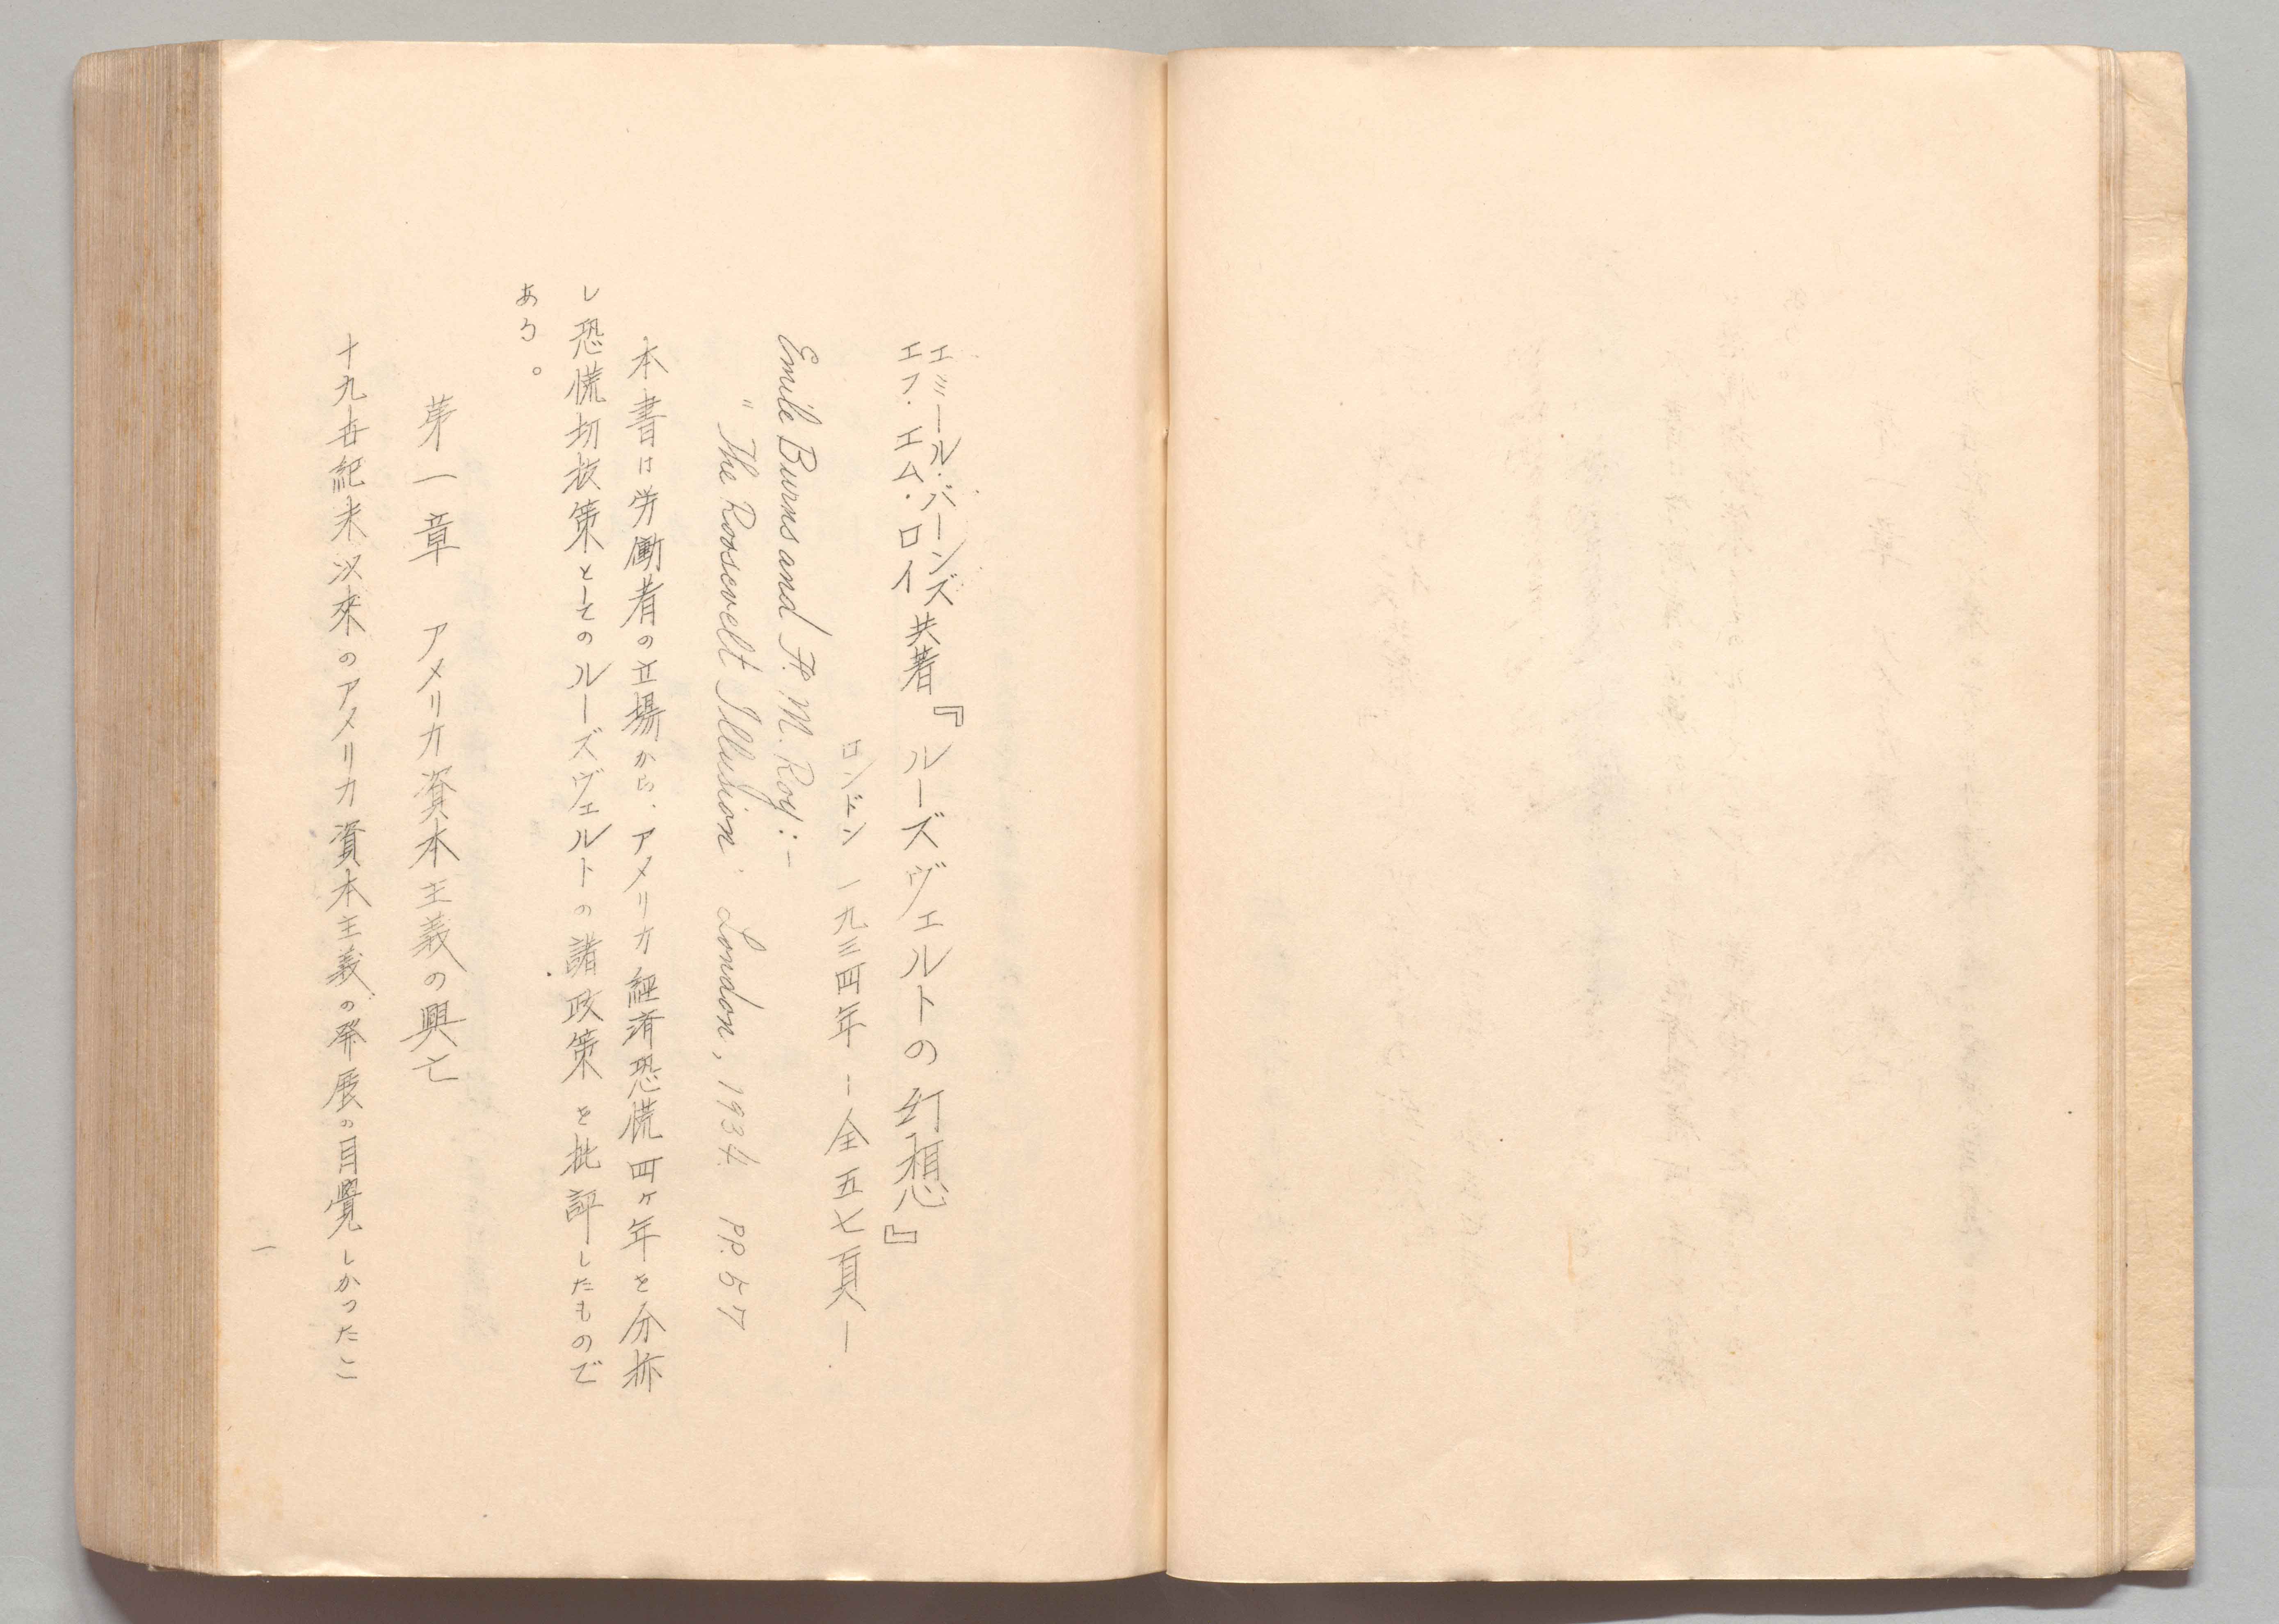 エミール・バーンズ
エフ・エム・ロイ
共著『ルーズヴェルトの幻想』
ロンドン 一九三四年 ―全五七頁―
Emile Burns and F. M. Roy:-
"The Roosevelt Illusion" London, 1934. PP. 57
本書は労働者の立場から、アメリカ經済恐慌四ヶ年を分析
し恐慌切抜策としてのルーズヴェルトの諸政策を批評したもので
ある。
第一章 アメリカ資本主義の興亡
十九世紀末以來のアメリカ資本主義の発展の目覺しかつたこ
一